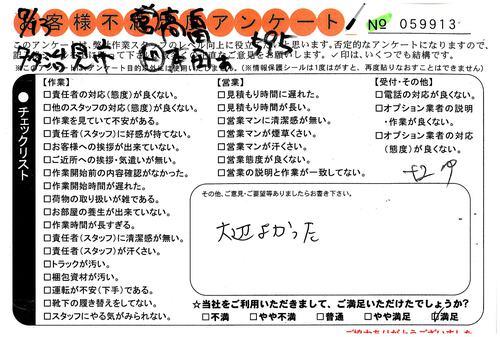 お客様不満足度アンケート
No 059913
このアンケートは、弊社作業スタッフのレベル向上に役立
思います。否定的なアンケートになりますので、
直なご意見をお願いします。✓印は、いくつでも結構です。
(※情報保護シールは1度がすと、再度貼りなおすことはできません)
チェックリスト
【作業】
□責任者の対応(態度)が良くない。
□他のスタッフの対応(態度)が良くない。
□作業を見ていて不安がある。
□責任者(スタッフ)に好感が持てない。
□お客様への挨拶が出来ていない。
□ご近所への挨拶・気遣いが無い。
□作業開始前の内容確認がなかった。
□作業開始時間が遅れた。
□荷物の取り扱いが雑である。
□お部屋の養生が出来ていない。
□作業時間が長すぎる。
□責任者(スタッフ)に清潔感が無い。
□責任者(スタッフ)が汗くさい。
□トラックが汚い。
□梱包資材が汚い。
□運転が不安(下手)である。
□靴下の履き替えをしてない。
□スタッフにやる気がみられない。
【営業】
□見積もり時間に遅れた。
□見積もり時間が長い。
□営業マンに清潔感が無い。
□営業マンが煙草くさい。
□営業マンが汗くさい。
□営業態度が良くない。
□営業の説明と作業が一致してない。
【受付・その他】
□電話の対応が良くない。
□オプション業者の説明
・作業が良くない。
□オプション業者の対応
(態度)が良くない。
その他、ご意見・ご要望等ありましたらお書き下さい。
大辺よかった
☆当社をご利用いただきまして、ご満足いただけたでしょうか?
□不満 □やや不満 □普通 □やや満足 ☑満足
ご協力ありがとうございました